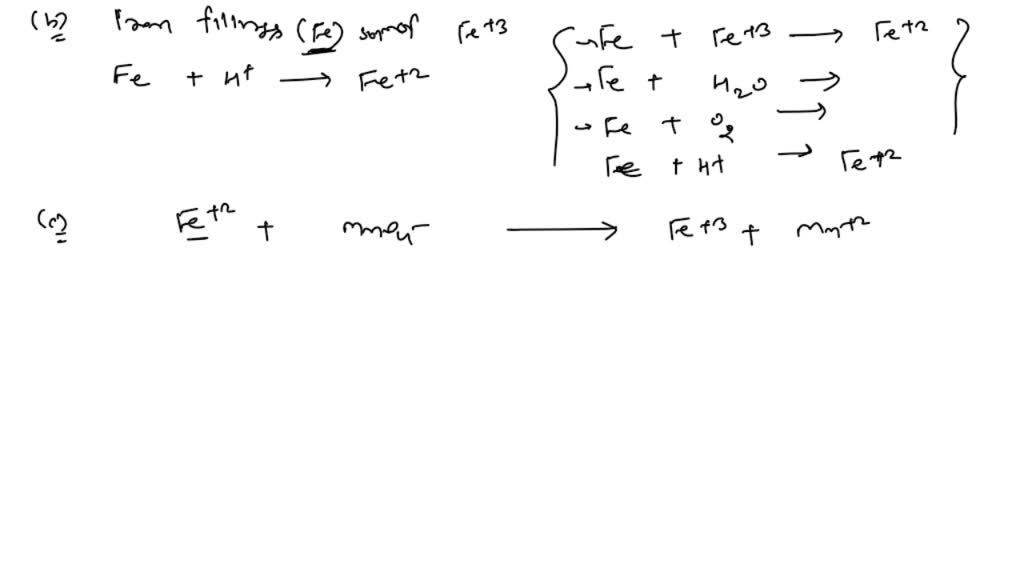 (b) Iron fillings (Fe) some of Fe+3
Fe + H+ → Fe+2
→ Fe + Fe+3 → Fe+2
→ Fe + H2O →
→ Fe + O2 →
Fe + H+ → Fe+2
(c) Fe+2 + MnO4- → Fe+3 + Mn+2